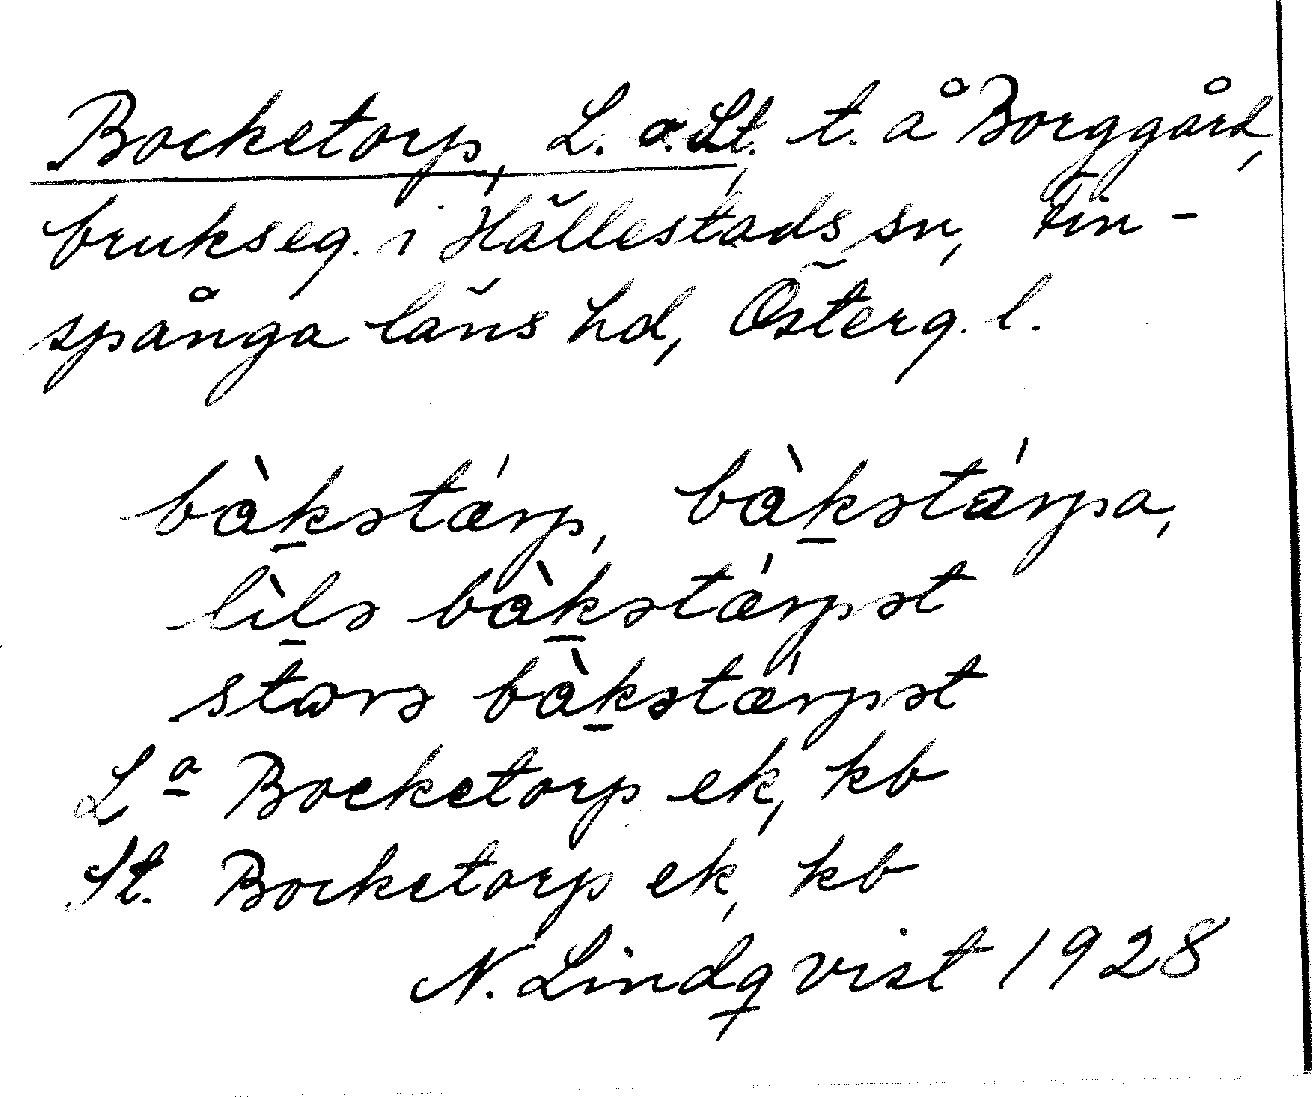 Bocketorp, L. o. St. t. å Borggård,
brukseg. i Hällestads sn, Fin-
spånga läns hd, Österg. l.
bàk̲ətárp, bàk̲ətárpa,
lìl̲ə bàk̲ətárpət
stωrə bàk̲ətárpət
La Bocketorp ek, kb
St. Bocketorp ek, kb
N. Lindqvist 1928